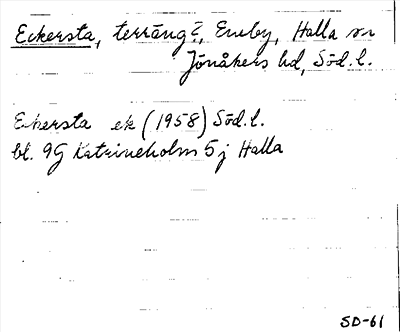 Eckersta, terräng?, Eneby, Halla sn
Jönåkers hd, Söd.l.
Ekersta ek (1958) Söd.l.
bl. 9G Katrineholm 5j Halla
SD-61